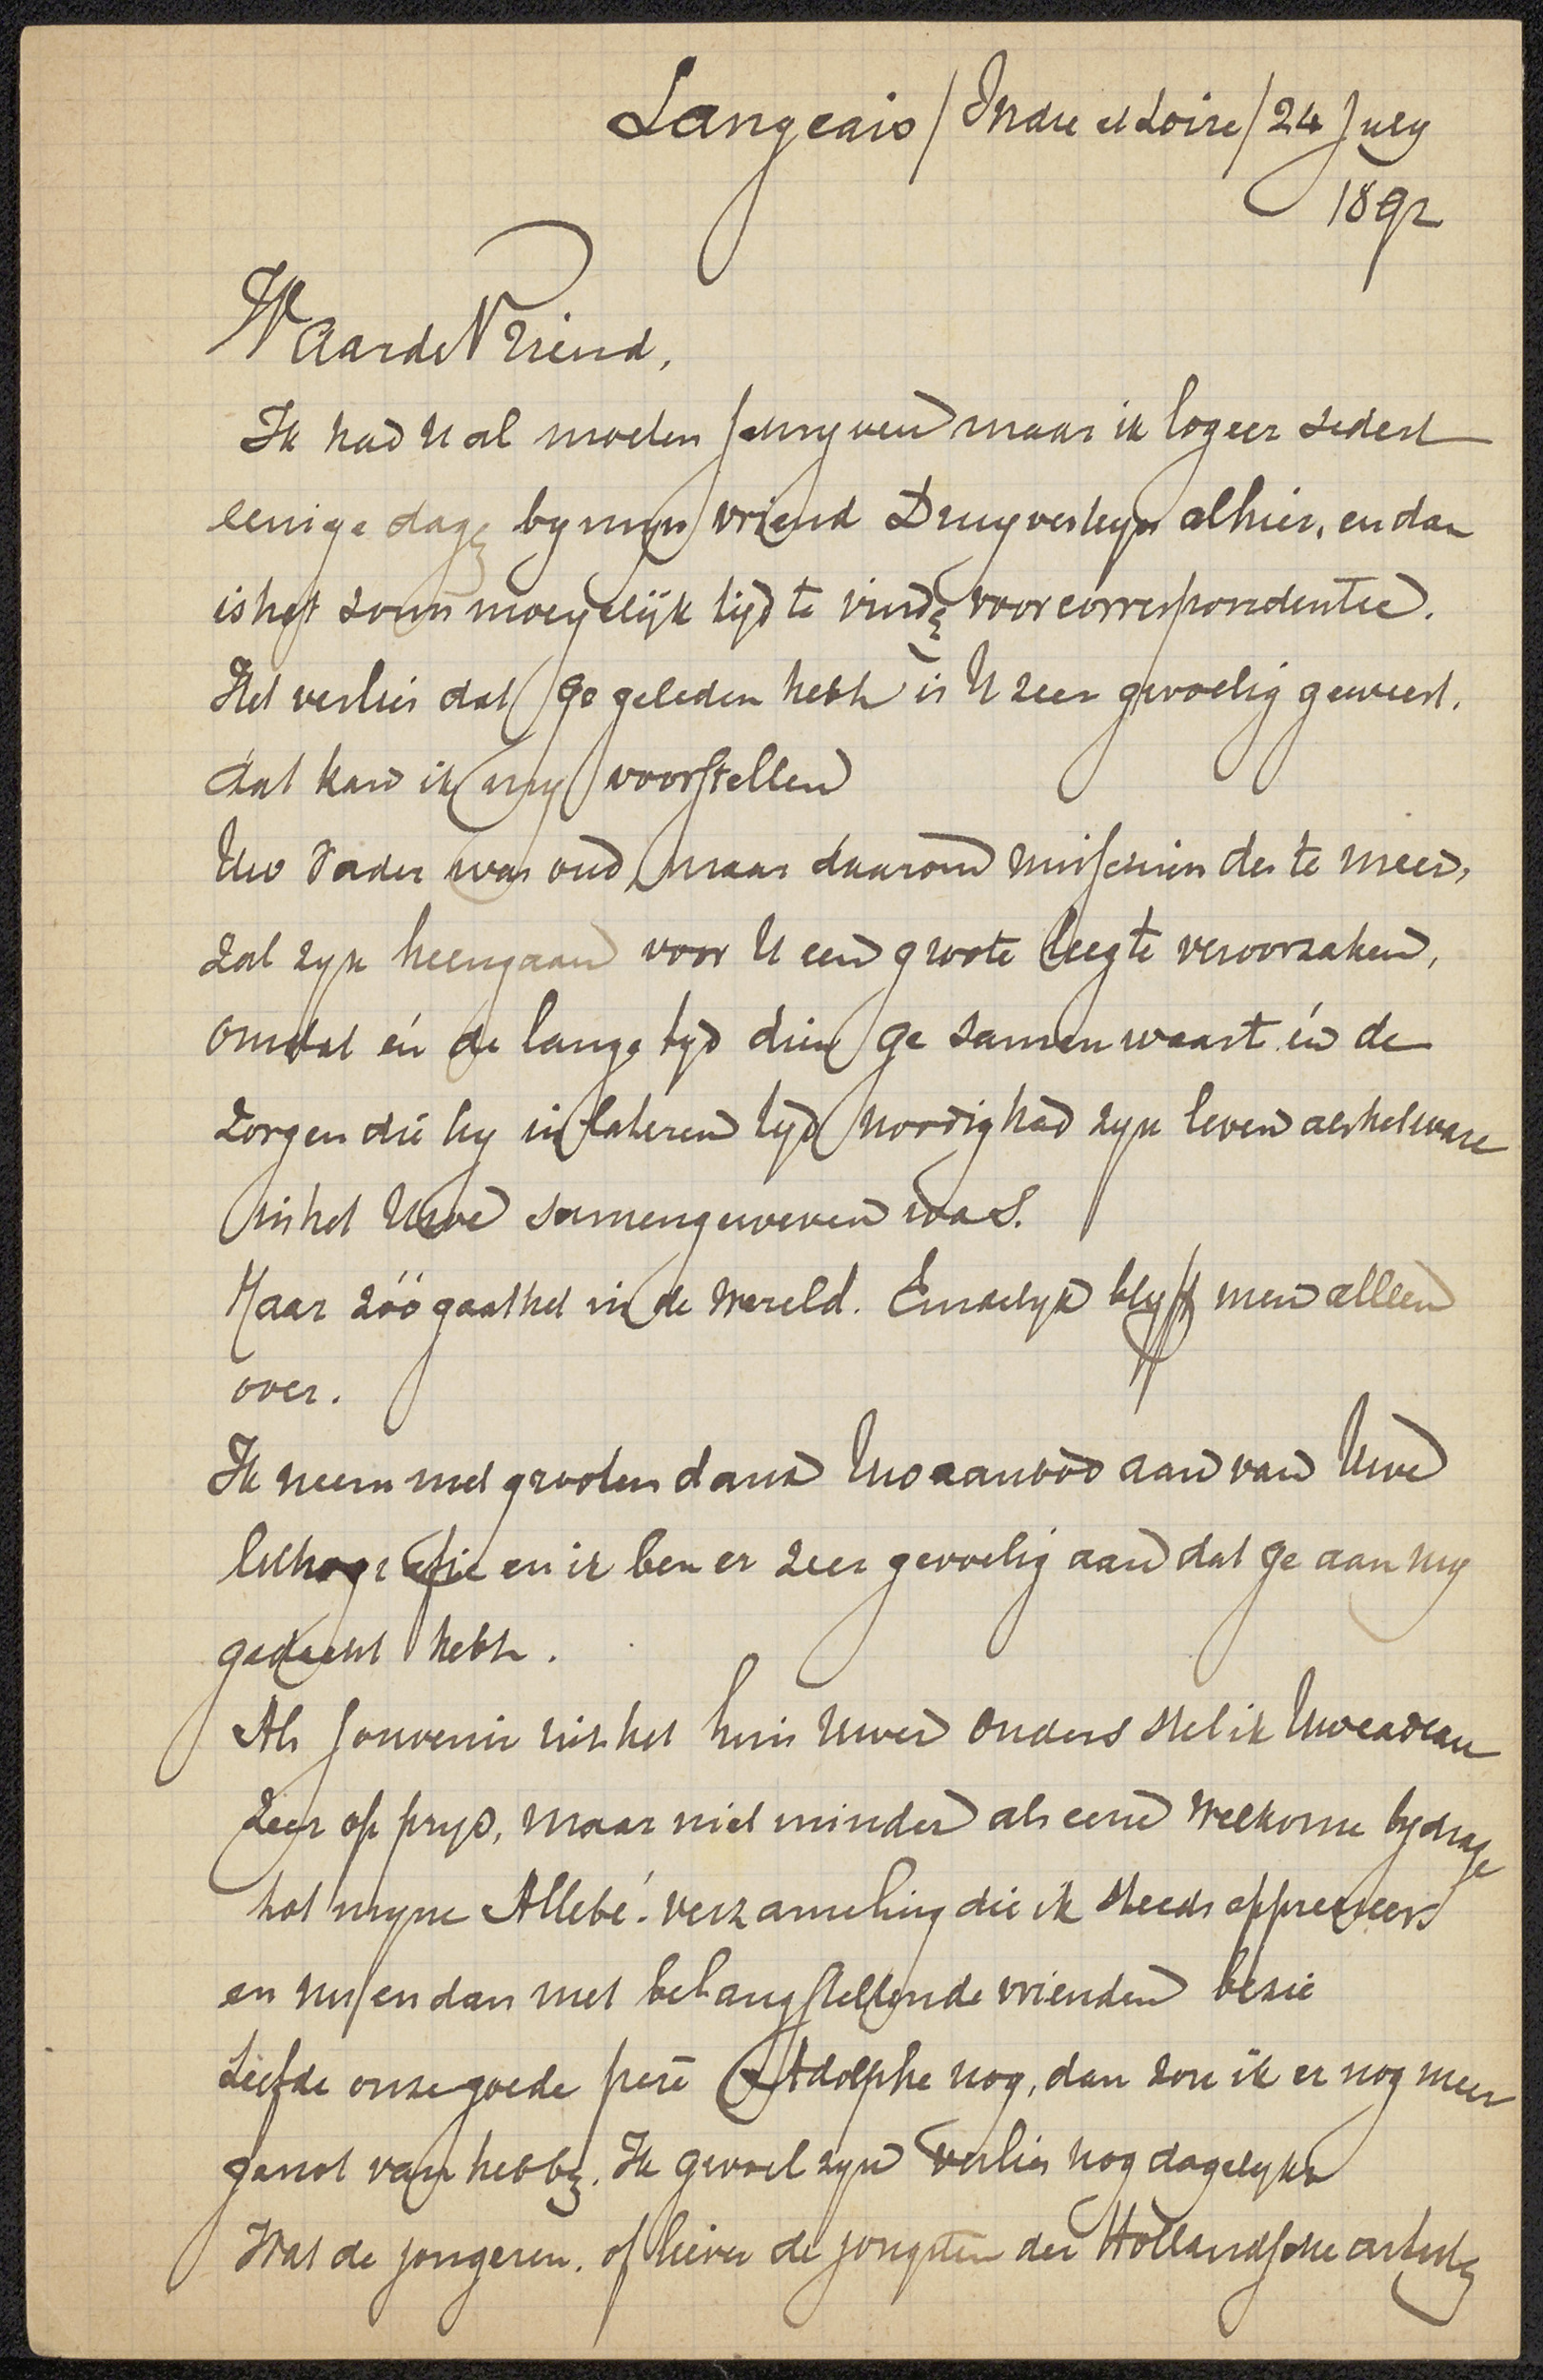 Langeais / Indre et Loire / 24 July
1892
Waarde Vriend,
Ik had U al moeten schryven maar ik logeer sedert
eenige dagen by myn vriend Druyvesteyn alhier, en dan
is het soms moeyelijk tijd te vinden voor correspondentie.
Het verlies dat ge geleden hebt is U zeer gevoelig geweest.
dat kan ik my voorstellen
Uw vader was oud, maar daarom misschien des te meer,
zal zyn heengaan voor U een groote leegte veroorzaken,
omdat én de lange tyd dien ge samen waart én de
zorgen die hy in lateren tyd noodig had zyn leven als het ware
in het Uwe samengeweven was.
Maar zóó gaat het in de wereld. Eindelyk blyft men alleen
over.
Ik neem met grooten dank Uw aanbod aan van Uwe
lithografie en ik ben er zeer gevoelig aan dat ge aan my
gedacht hebt.
Als souvenir uit het huis Uwer ouders stel ik Uw cadeau
zeer op prys, maar niet minder als eene welkome bydrage
tot myne Allebé-verzameling die ik steeds apprecieer
en nu en dan met belangstellende vrienden bezie
Leefde onze goede père Adolphe nog, dan zou ik er nog meer
genot van hebben. Ik gevoel zyn verlies nog dagelyks
Wat de jongeren, of liever de jongsten der Hollandsche artisten